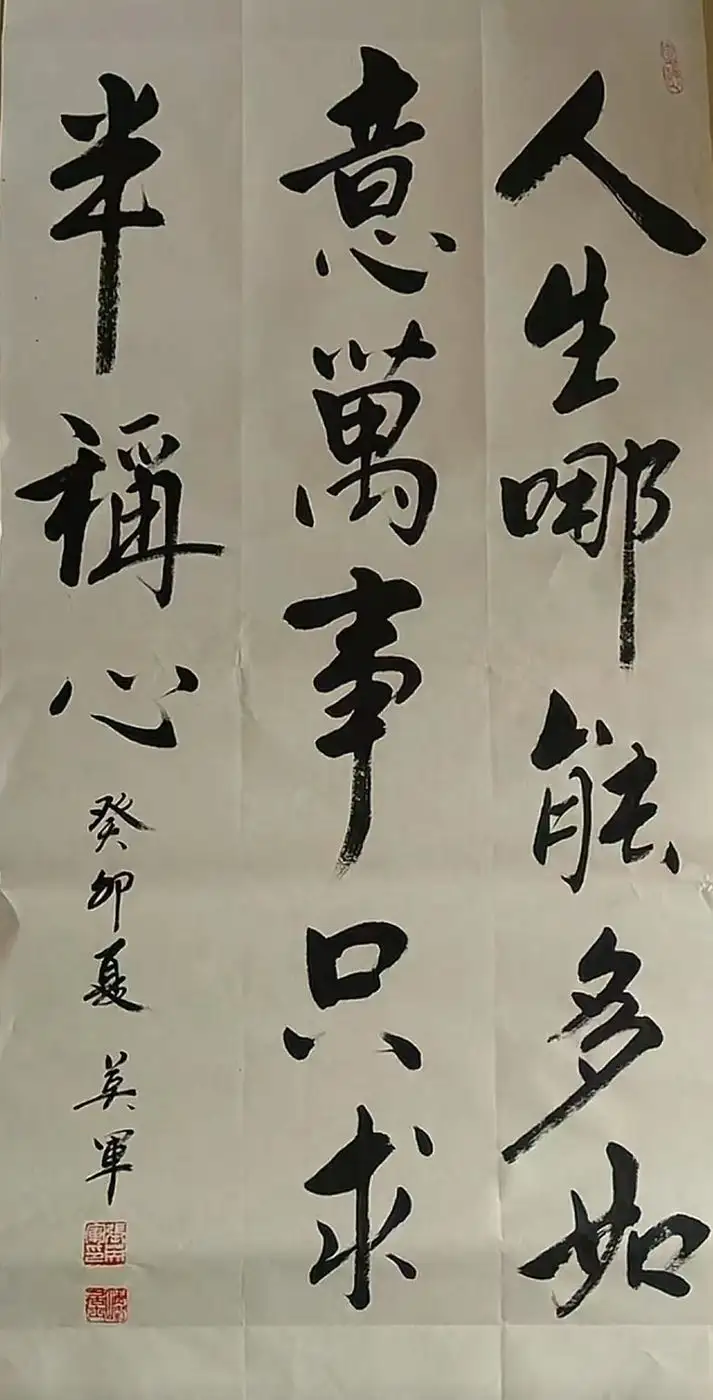 人生哪能多如
意萬事只求
半稱心
癸卯夏 英軍